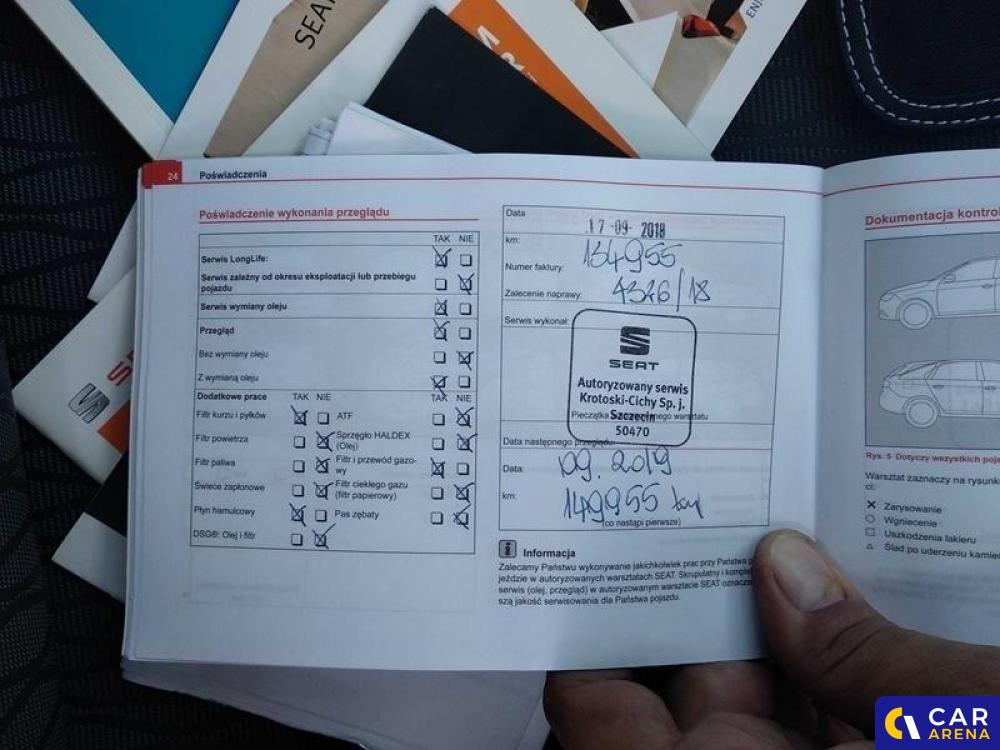 SEAT
ENJ
24 Poświadczenia
Poświadczenie wykonania przeglądu
TAK NIE
Serwis LongLife:
Serwis zależny od okresu eksploatacji lub przebiegu
pojazdu
Serwis wymiany oleju
Przegląd
Bez wymiany oleju
Z wymianą oleju
Dodatkowe prace TAK NIE TAK NIE
Filtr kurzu i pyłków ATF
Filtr powietrza Sprzęgło HALDEX
(Olej)
Filtr paliwa Filtr i przewód gazo-
wy
Świece zapłonowe Filtr ciekłego gazu
(filtr papierowy)
Płyn hamulcowy Pas zębaty
DSG®: Olej i filtr
Data 17-09-2018
km: 134955
Numer faktury: 4326/18
Zalecenie naprawy:
Serwis wykonał:
SEAT
Autoryzowany serwis
Krotoski-Cichy Sp. j.
Szczecin
50470
Data następnego przeglądu:
Data: 09.2019
km: 149955 km
(co nastąpi pierwsze)
i Informacja
Zalecamy Państwu wykonywanie jakichkolwiek prac przy Państwa p
jeździe w autoryzowanych warsztatach SEAT. Skrupulatny i komple
serwis (olej, przegląd) w autoryzowanym warsztacie SEAT oznacza
szą jakość serwisowania dla Państwa pojazdu.
Dokumentacja kontrol
Rys. 5 Dotyczy wszystkich poja
Warsztat zaznaczy na rysunk
ci:
Zarysowanie
Wgniecenie
Uszkodzenia lakieru
Ślad po uderzeniu kamie
CAR
ARENA